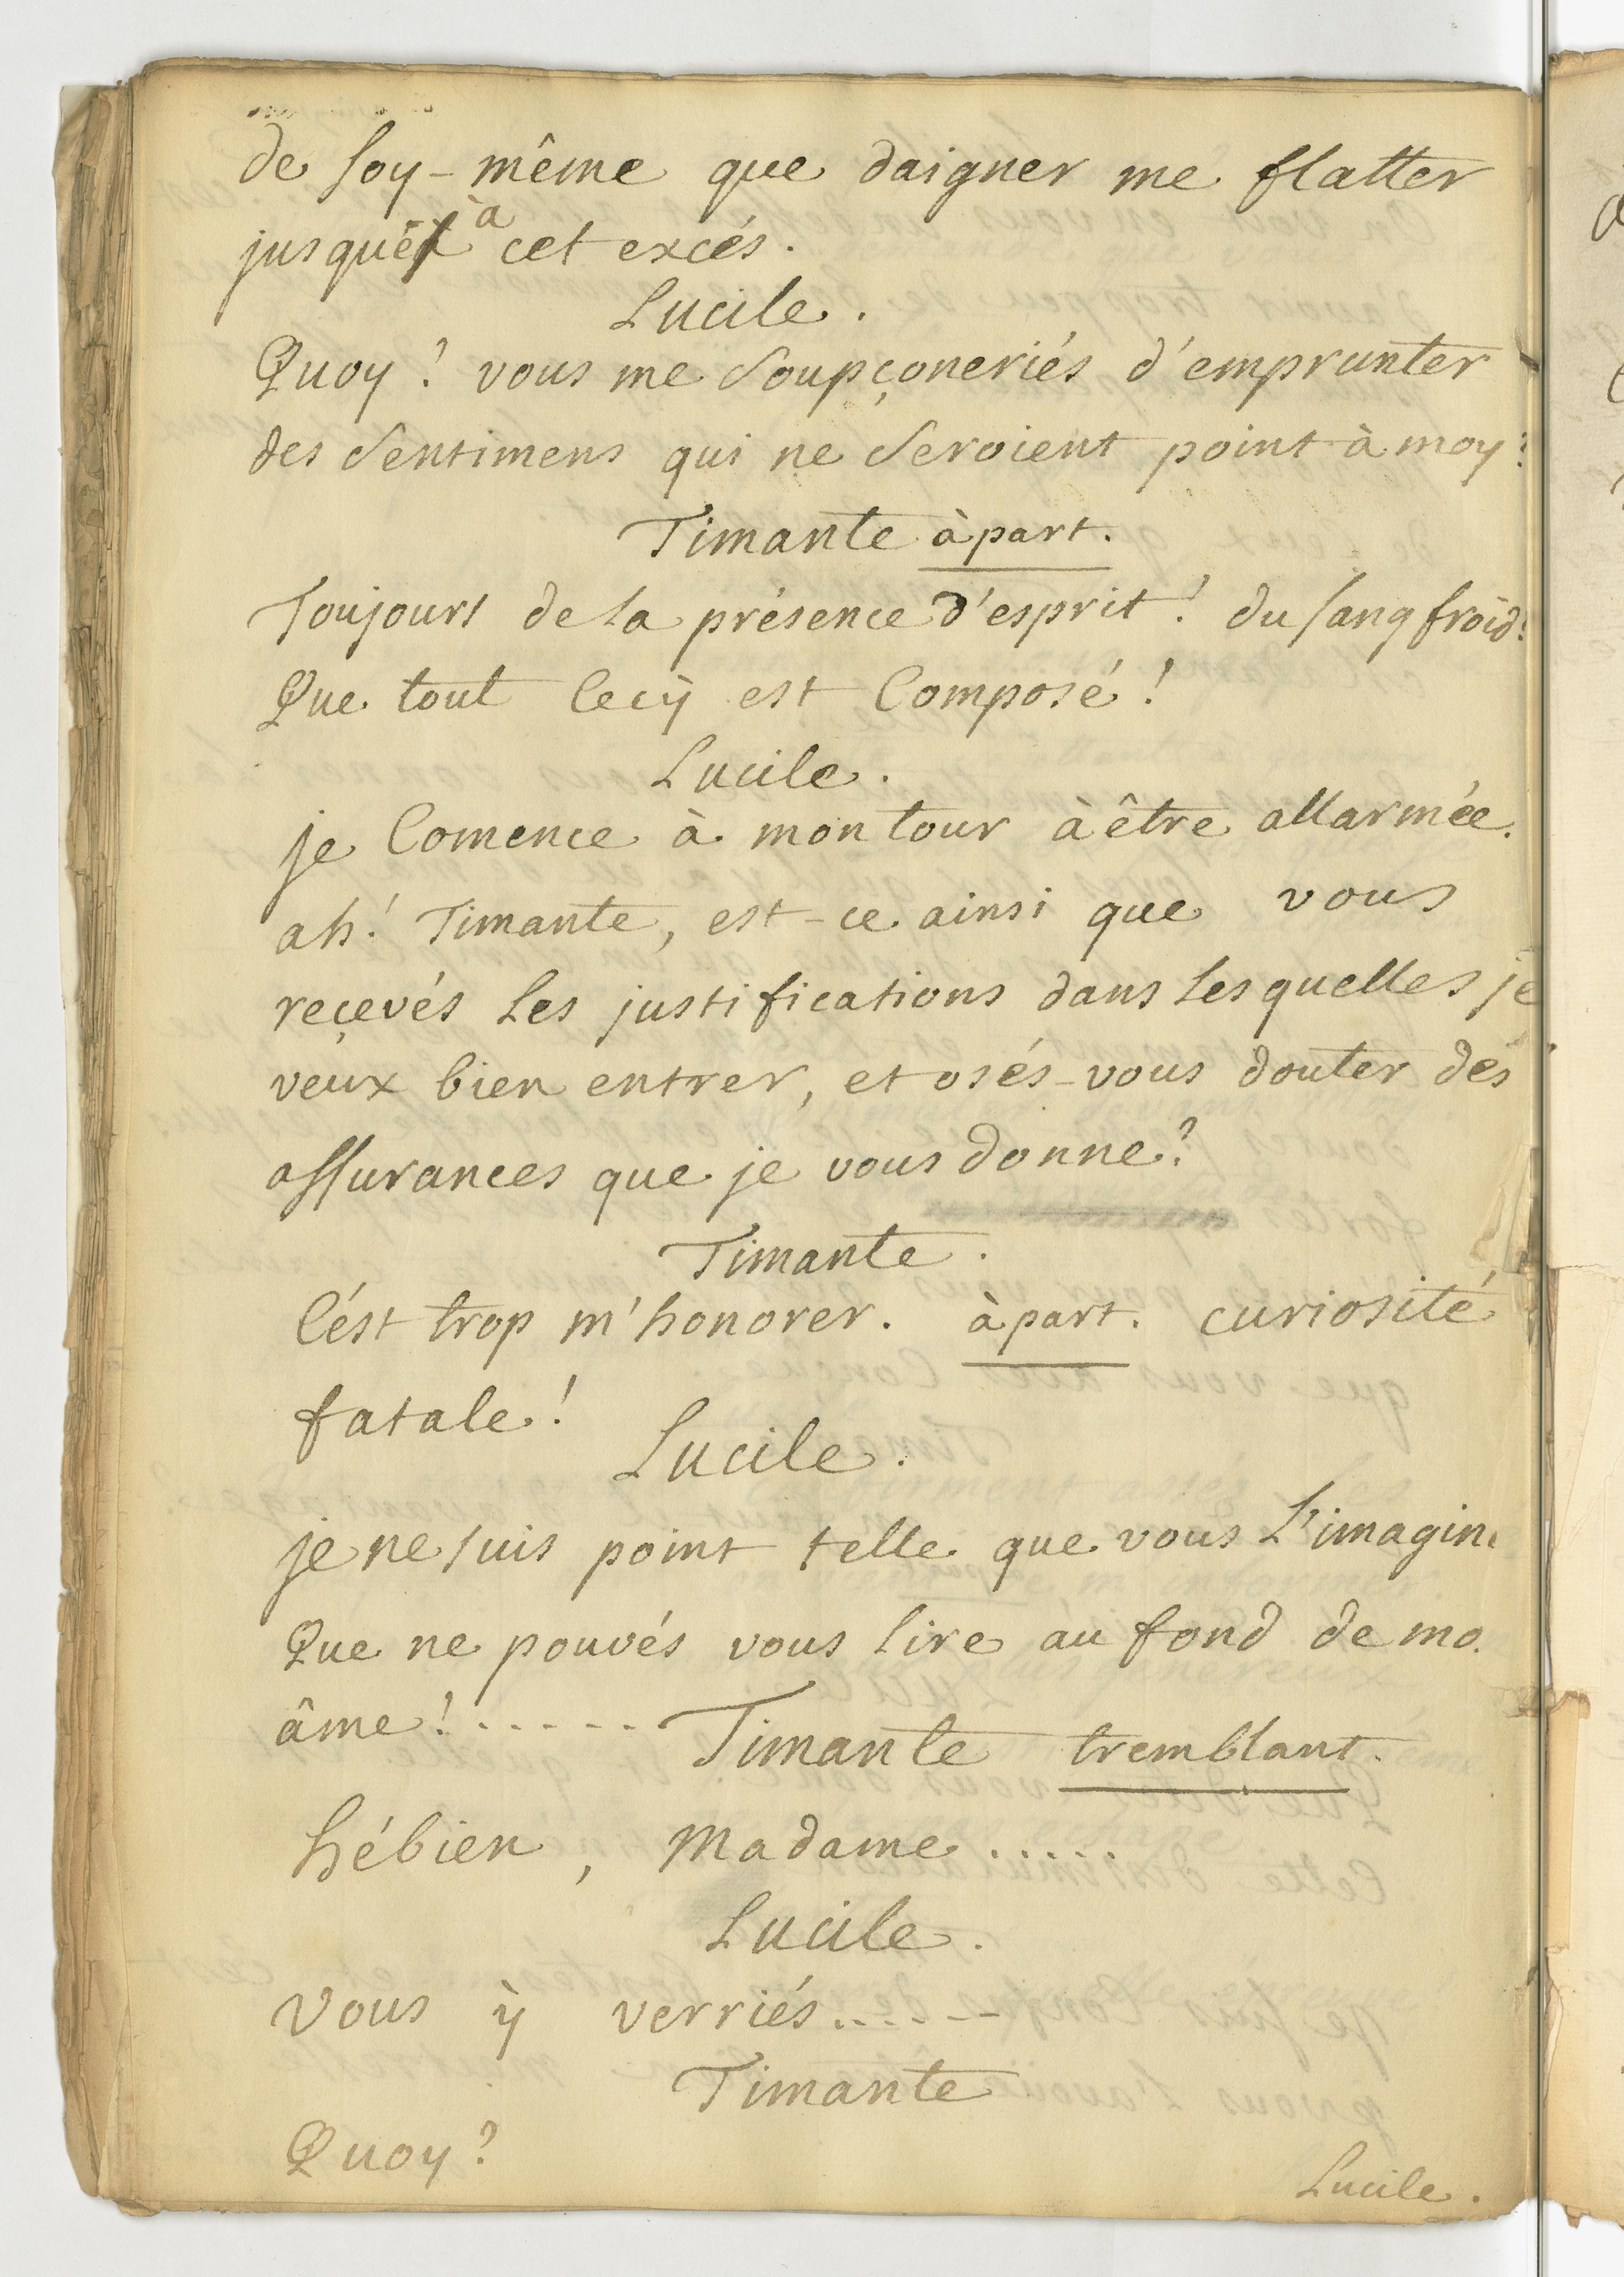 de soy-même que daigner me flatter
jusqués à cet excés.
Lucile.
Quoy! vous me soupçoneriés d'emprunter
des sentimens qui ne seroient point à moy?
Timante à part.
Toujours de la présence d'esprit! du sang froid!
Que tout Cecÿ est Composé!
Lucile.
je Comence à mon tour à être allarmée.
ah! Timante, est-ce ainsi que vous
reçevés les justifications dans lesquelles je
veux bien entrer, et osés-vous douter des
assurances que je vous donne?
Timante.
C'ést trop m'honorer. à part. curiosité
fatale!
Lucile.
je ne suis point telle que vous l'imagin
Que ne pouvés vous lire au fond de mo
âme! ......
Timante tremblant.
hébien, Madame.....
Lucile.
Vous ÿ verriés.....
Timante
Quoy?
Lucile.